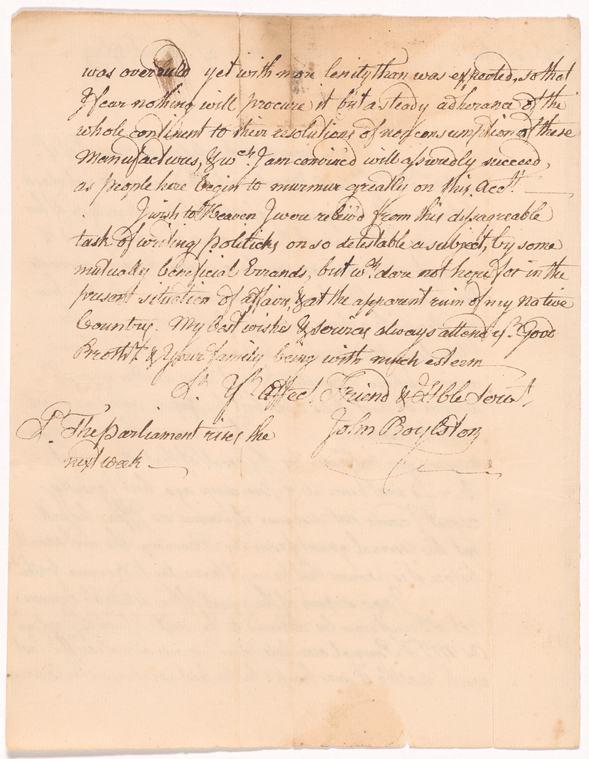 was overruld yet with more lenity than was expected, so that
I fear nothing will procure it but a steady adherance of the
whole continent to their resolutions of nonconsumption of these
Manufactures, & wch. I am convinc'd will assuredly succeed,
as people here begin to murmur greatly on this Acct.
I wish to Heaven I were reliev'd from this disagreeable
task of writing politicks on so detestable a subject, by some
mutually beneficial Errands, but wch. dare not hope for in the
present situation of affairs, & at the apparent ruin of my native
Country. My best wishes & services always attend yr. Good
Brothr. & Your family being with much esteem
Sr. Yr. Affect. Friend & Hble Servt.
John Boylston
P. The parliament rises the
next week